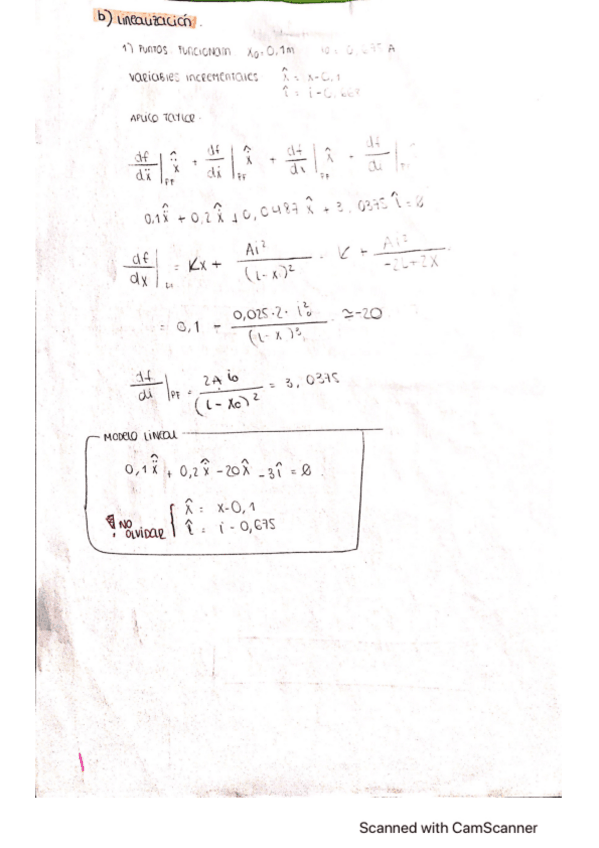 b) Linealización.
1) PUNTOS FUNCIONAM x₀=0,1m i₀=0,675 A
Variables incrementales x̂ = x-0,1
î = i-0,668
APLICO TAYLOR.
df/dẍ| PF ẍ̂ + df/di| PF x̂ + df/dx| PF x̂ - df/di|
0,1ẍ̂ + 0,2x̂ + 0,0487x̂ + 3,0375î = 0
df/dx| = Kx + Ai²/(L-x)² = K + Ai²/-2L+2X
= 0,1 - 0,025·2·i₀²/(L-x)³ ≃-20
df/di|PF = 2Ai₀/(L-x₀)² = 3,0375
MODELO LINEAL
0,1ẍ̂ + 0,2x̂ -20x̂ -3î = 0
¡NO OLVIDAR { x̂ = x-0,1
î = i-0,675
Scanned with CamScanner